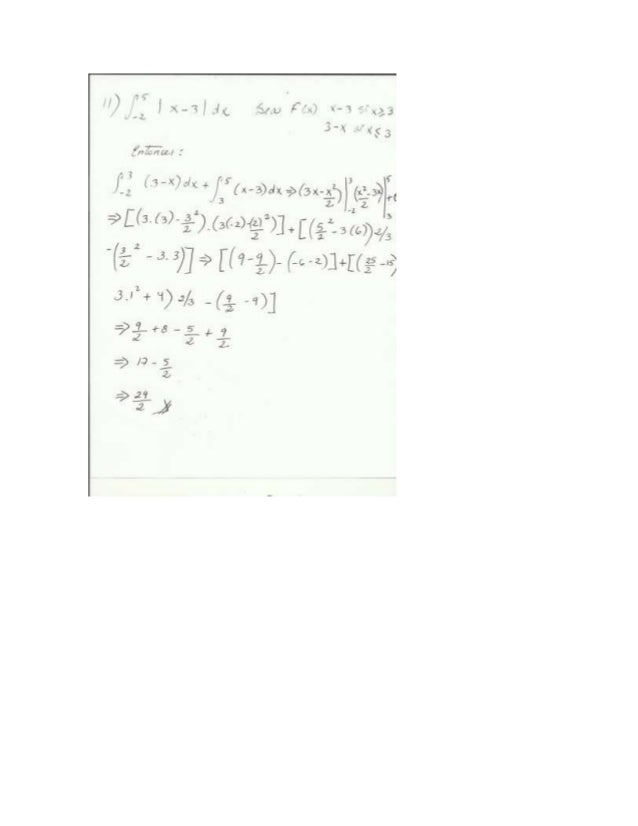 11) ∫₋₂⁵ |x-3| dx   Sea F(x)   x-3 si x≥3
3-x si x≤3
Entonces:
∫₋₂³ (3-x)dx + ∫₃⁵ (x-3)dx ⇒ (3x-x²/2)|₋₂³ (x²/2-3x)|₃⁵ +
⇒ [(3.(3)-3²/2).(3(-2)-(2)²/2)] + [(5²/2 -3(6)) 2/3
-(3²/2 - 3.3)] ⇒ [(9-9/2)-(-6-2)]+[(25/2 -15)
3.1² + 4) 2/3 - (9/2 -9)]
⇒ 9/2 +8 - 5/2 + 9/2
⇒ 17 - 5/2
⇒ 29/2